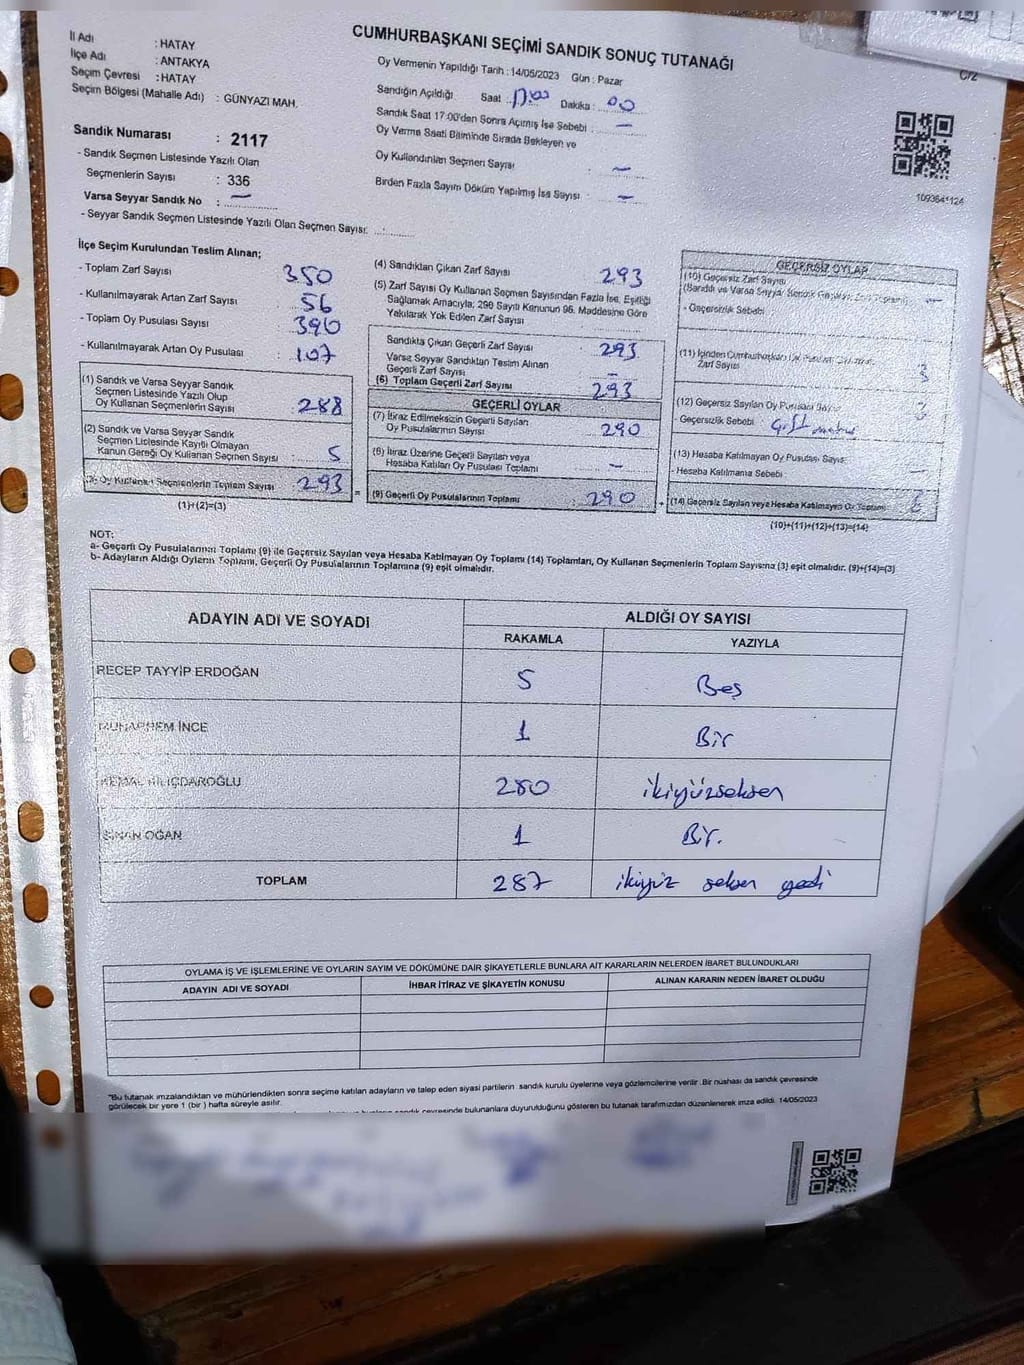 CUMHURBAŞKANI SEÇİMİ SANDIK SONUÇ TUTANAĞI
C/2
İl Adı : HATAY
İlçe Adı : ANTAKYA
Seçim Çevresi : HATAY
Seçim Bölgesi (Mahalle Adı) : GÜNYAZI MAH.
Oy Vermenin Yapıldığı Tarih : 14/05/2023 Gün : Pazar
Sandığın Açıldığı Saat : 17:00 Dakika : 00
Sandık Saat 17:00'den Sonra Açılmış İse Sebebi : —
Oy Verme Saati Bitiminde Sırada Bekleyen ve
Oy Kullandırılan Seçmen Sayısı : —
Birden Fazla Sayım Döküm Yapılmış İse Sayısı : —
Sandık Numarası : 2117
- Sandık Seçmen Listesinde Yazılı Olan
Seçmenlerin Sayısı : 336
Varsa Seyyar Sandık No : —
- Seyyar Sandık Seçmen Listesinde Yazılı Olan Seçmen Sayısı :
1093641124
İlçe Seçim Kurulundan Teslim Alınan;
- Toplam Zarf Sayısı : 350
- Kullanılmayarak Artan Zarf Sayısı : 56
- Toplam Oy Pusulası Sayısı : 390
- Kullanılmayarak Artan Oy Pusulası : 107
(1) Sandık ve Varsa Seyyar Sandık
Seçmen Listesinde Yazılı Olup
Oy Kullanan Seçmenlerin Sayısı : 288
(2) Sandık ve Varsa Seyyar Sandık
Seçmen Listesinde Kayıtlı Olmayan
Kanun Gereği Oy Kullanan Seçmen Sayısı : 5
(3) Oy Kullanan Seçmenlerin Toplam Sayısı : 293
(1)+(2)=(3)
(4) Sandıktan Çıkan Zarf Sayısı 293
(5) Zarf Sayısı Oy Kullanan Seçmen Sayısından Fazla İse, Eşitliği
Sağlamak Amacıyla; 298 Sayılı Kanunun 98. Maddesine Göre
Yakılarak Yok Edilen Zarf Sayısı
Sandıkta Çıkan Geçerli Zarf Sayısı : 293
Varsa Seyyar Sandıktan Teslim Alınan
Geçerli Zarf Sayısı : —
(6) Toplam Geçerli Zarf Sayısı 293
GEÇERLİ OYLAR
(7) İtiraz Edilmeksizin Geçerli Sayılan
Oy Pusulalarının Sayısı : 290
(8) İtiraz Üzerine Geçerli Sayılan veya
Hesaba Katılan Oy Pusulası Toplamı : —
(9) Geçerli Oy Pusulalarının Toplamı : 290
GEÇERSİZ OYLAR
(10) Geçersiz Zarf Sayısı —
- Geçersizlik Sebebi
Zarf Sayısı : 3
(12) Geçersiz Sayılan Oy Pusulası Sayısı
- Geçersizlik Sebebi :
(13) Hesaba Katılmayan Oy Pusulası Sayısı
- Hesaba Katılmama Sebebi
(14) Geçersiz Sayılan veya Hesaba Katılmayan Oy Toplamı
(10)+(11)+(12)+(13)=(14)
NOT:
a- Geçerli Oy Pusulalarının Toplamı (9) ile Geçersiz Sayılan veya Hesaba Katılmayan Oy Toplamı (14) Toplamları, Oy Kullanan Seçmenlerin Toplam Sayısına (3) eşit olmalıdır. (9)+(14)=(3)
b- Adayların Aldığı Oyların Toplamı, Geçerli Oy Pusulalarının Toplamına (9) eşit olmalıdır.
ADAYIN ADI VE SOYADI
ALDIĞI OY SAYISI
RAKAMLA YAZIYLA
RECEP TAYYİP ERDOĞAN 5 Beş
MUHARREM İNCE 1 Bir
KEMAL KILIÇDAROĞLU 280 ikiyüzseksen
SİNAN OĞAN 1 Bir.
TOPLAM 287 ikiyüz seksen yedi
OYLAMA İŞ VE İŞLEMLERİNE VE OYLARIN SAYIM VE DÖKÜMÜNE DAİR ŞİKAYETLERLE BUNLARA AİT KARARLARIN NELERDEN İBARET BULUNDUKLARI
ADAYIN ADI VE SOYADI İHBAR İTİRAZ VE ŞİKAYETİN KONUSU ALINAN KARARIN NEDEN İBARET OLDUĞU
"Bu tutanak imzalandıktan ve mühürlendikten sonra seçime katılan adayların ve talep eden siyasi partilerin sandık kurulu üyelerine veya gözlemcilerine verilir. Bir nüshası da sandık çevresinde
görülecek bir yere 1 (bir) hafta süreyle asılır.
sandık çevresinde bulunanlara duyurulduğunu gösteren bu tutanak tarafımızdan düzenlenerek imza edildi. 14/05/2023